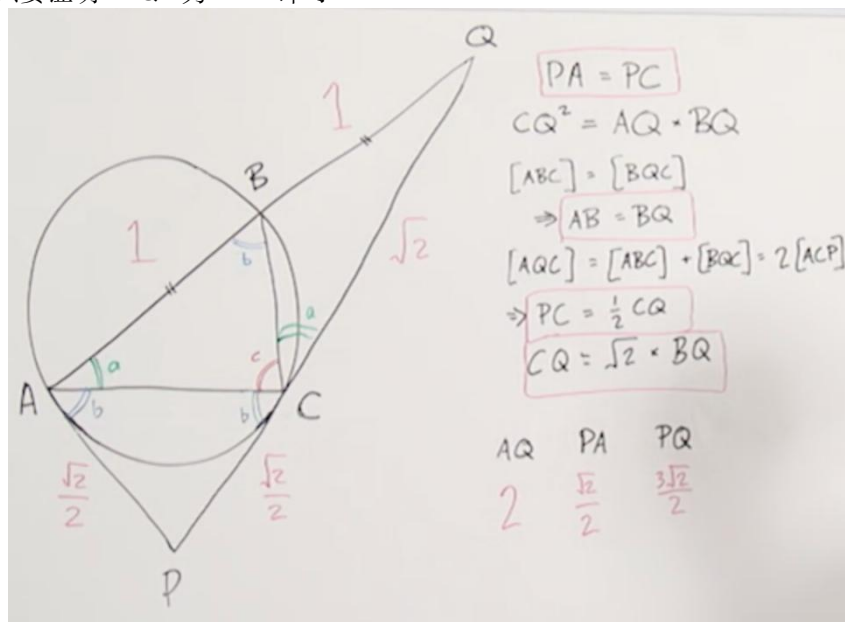 Q
1
B
1
b
√2
a
a
c
A
b
b
C
√2/2
√2/2
P
PA = PC
CQ² = AQ · BQ
[ABC] = [BQC]
⇒ AB = BQ
[AQC] = [ABC] + [BQC] = 2[ACP]
⇒ PC = ½ CQ
CQ = √2 · BQ
AQ PA PQ
2 √2/2 3√2/2